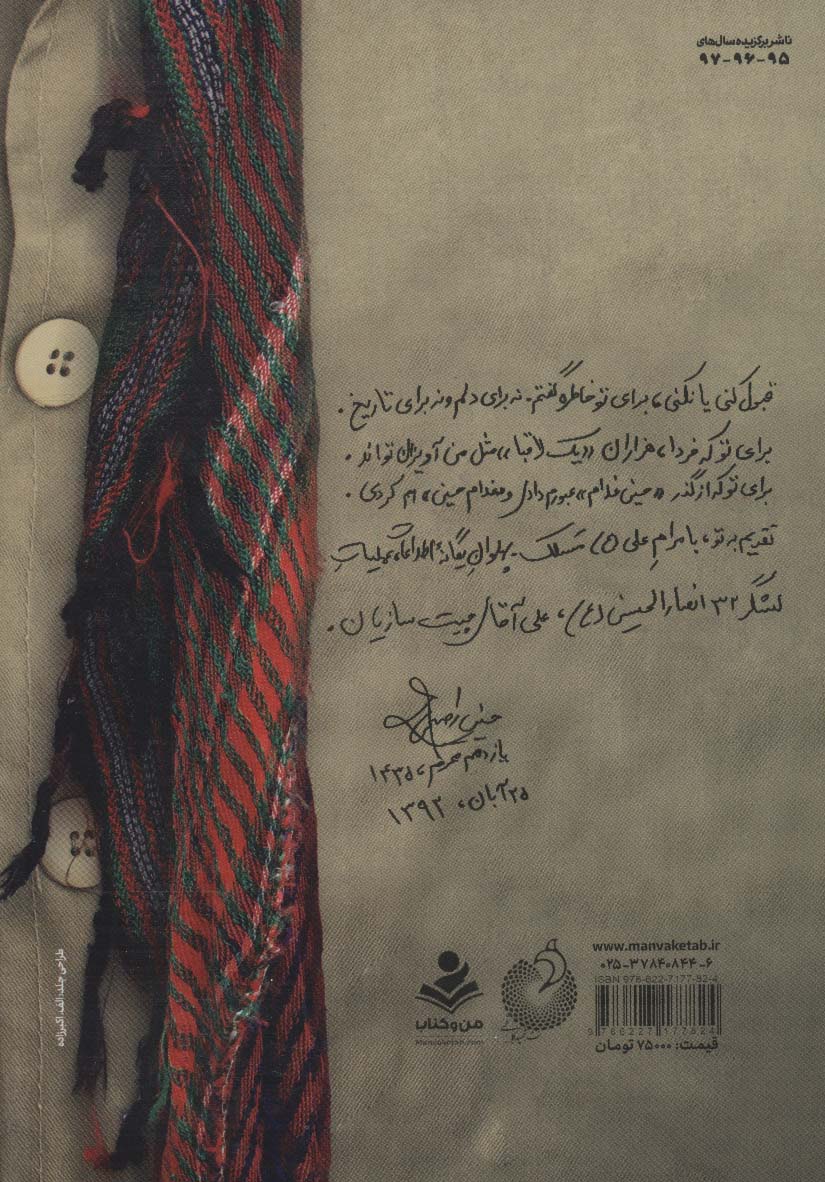 ناشر برگزیده سال‌های
۹۵-۹۶-۹۷
قبول کنی یا نکنی، برای تو خاطره گفتم. نه برای دلم و نه برای تاریخ.
برای تو که فردا، هزاران «یک لاقبا»، مثل من آویزان تواند.
برای تو که از گذر «حینی فدام»، عبورم دادی و مقدام حینی، ام کردی.
تقدیم به تو، با مرامِ علی (ع) مسلک. پهلوانِ یگانهٔ اطلاعات عملیاتِ
لشگر ۳۲ انصارالحسین (ع)، علی آقای چیت سازیان.
یازدهم محرم، ۱۴۳۵
۲۵ آبان، ۱۳۹۲
www.manvaketab.ir
۰۲۵-۳۷۸۴۰۸۴۴-۶
ISBN 978-622-7177-82-4
9 786227 177824
قیمت: ۷۵۰۰۰ تومان
من و کتاب
Manvaketab.com
طراحی جلد: الف. اکبرزاده